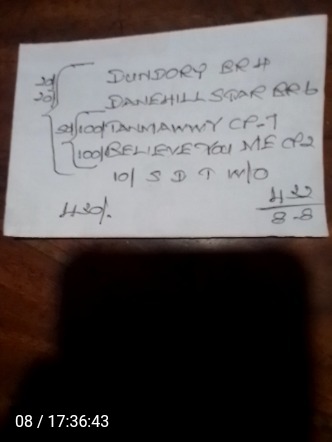 20/ DUNDORY BR 4
20/ DANEHILL STAR BR 6
50/ 100/ TANMAWWY CP-7
100/ BELIEVE YOU ME CP2
10/ S D T W/O
420/.
8-8
08 / 17:36:43